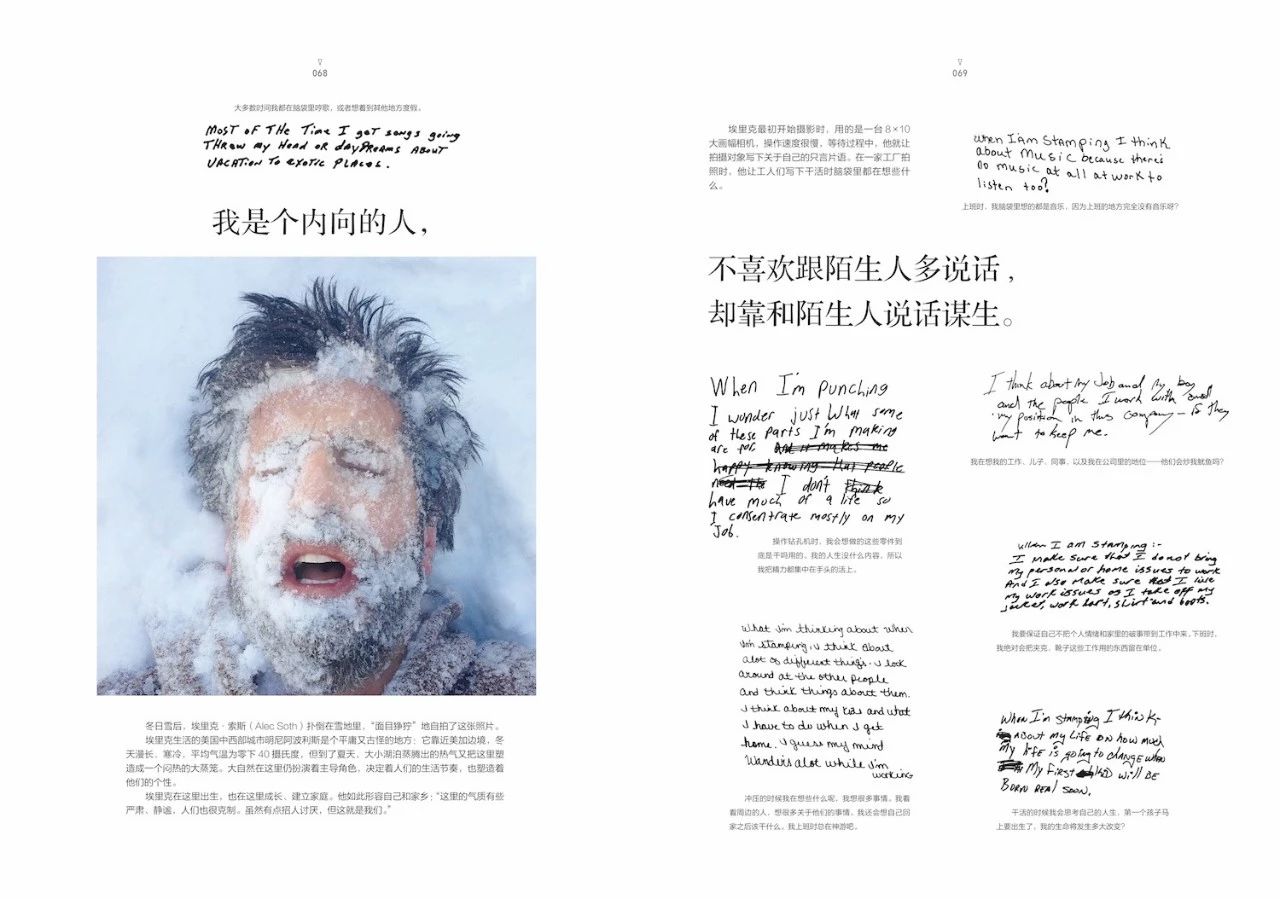 068
大多数时间我都在脑袋里哼歌，或者想着到其他地方度假。
MOST OF THE Time I get songs going
THREW my HEAD OR daydreams ABOUT
VACATION To exotic PLACES.
我是个内向的人，
冬日雪后，埃里克·索斯（Alec Soth）扑倒在雪地里，“面目狰狞”地自拍了这张照片。
埃里克生活的美国中西部城市明尼阿波利斯是个平庸又古怪的地方：它靠近美加边境，冬
天漫长、寒冷，平均气温为零下 40 摄氏度，但到了夏天，大小湖泊蒸腾出的热气又把这里塑
造成一个闷热的大蒸笼。大自然在这里仍扮演着主导角色，决定着人们的生活节奏，也塑造着
他们的个性。
埃里克在这里出生，也在这里成长、建立家庭。他如此形容自己和家乡：“这里的气质有些
严肃、静谧，人们也很克制。虽然有点招人讨厌，但这就是我们。”
069
埃里克最初开始摄影时，用的是一台 8×10
大画幅相机，操作速度很慢，等待过程中，他就让
拍摄对象写下关于自己的只言片语。在一家工厂拍
照时，他让工人们写下干活时脑袋里都在想些什
么。
When I am Stamping I think
about music because there's
no music at all at work to
listen too?
上班时，我脑袋里想的都是音乐，因为上班的地方完全没有音乐呀？
不喜欢跟陌生人多说话，
却靠和陌生人说话谋生。
When I'm punching
I wonder just What some
of these parts I'm making
are for. And it makes me
happy knowing that people
need the I don't think
have much of a life so
I consentrate mostly on my
Job.
操作钻孔机时，我会想做的这些零件到
底是干吗用的，我的人生没什么内容，所以
我把精力都集中在手头的活上。
I think about my Job and My boy
and the people I work with and
my position in this company — is they
want to keep me.
我在想我的工作、儿子、同事，以及我在公司里的地位——他们会炒我鱿鱼吗？
when I am stamping:-
I make sure that I do not bring
my personal or home issues to work
And I also make sure that I live
my work issues as I take off my
jacket, work hart, shirt and boots.
我要保证自己不把个人情绪和家里的破事带到工作中来，下班时，
我绝对会把夹克、靴子这些工作用的东西留在单位。
what I'm thinking about when
I'm stamping, I think about
alot of different things. I look
around at the other people
and think things about them.
I think about my kids and what
I have to do when I get
home. I guess my mind
Wanders alot while I'm
working
冲压的时候我在想些什么呢，我想很多事情。我看
看周边的人，想很多关于他们的事情，我还会想自己回
家之后该干什么，我上班时总在神游吧。
When I'm stamping I think
About my Life on how much
My life is going to change when
My First KID will BE
BORN REAL Soon.
干活的时候我会思考自己的人生，第一个孩子马
上要出生了，我的生命将发生多大改变？